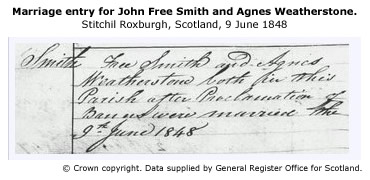 Marriage entry for John Free Smith and Agnes Weatherstone.
Stitchil Roxburgh, Scotland, 9 June 1848
Smith Free Smith and Agnes
Weatherstone both in this
Parish after Proclamation of
Banns were married the
9th June 1848
© Crown copyright. Data supplied by General Register Office for Scotland.